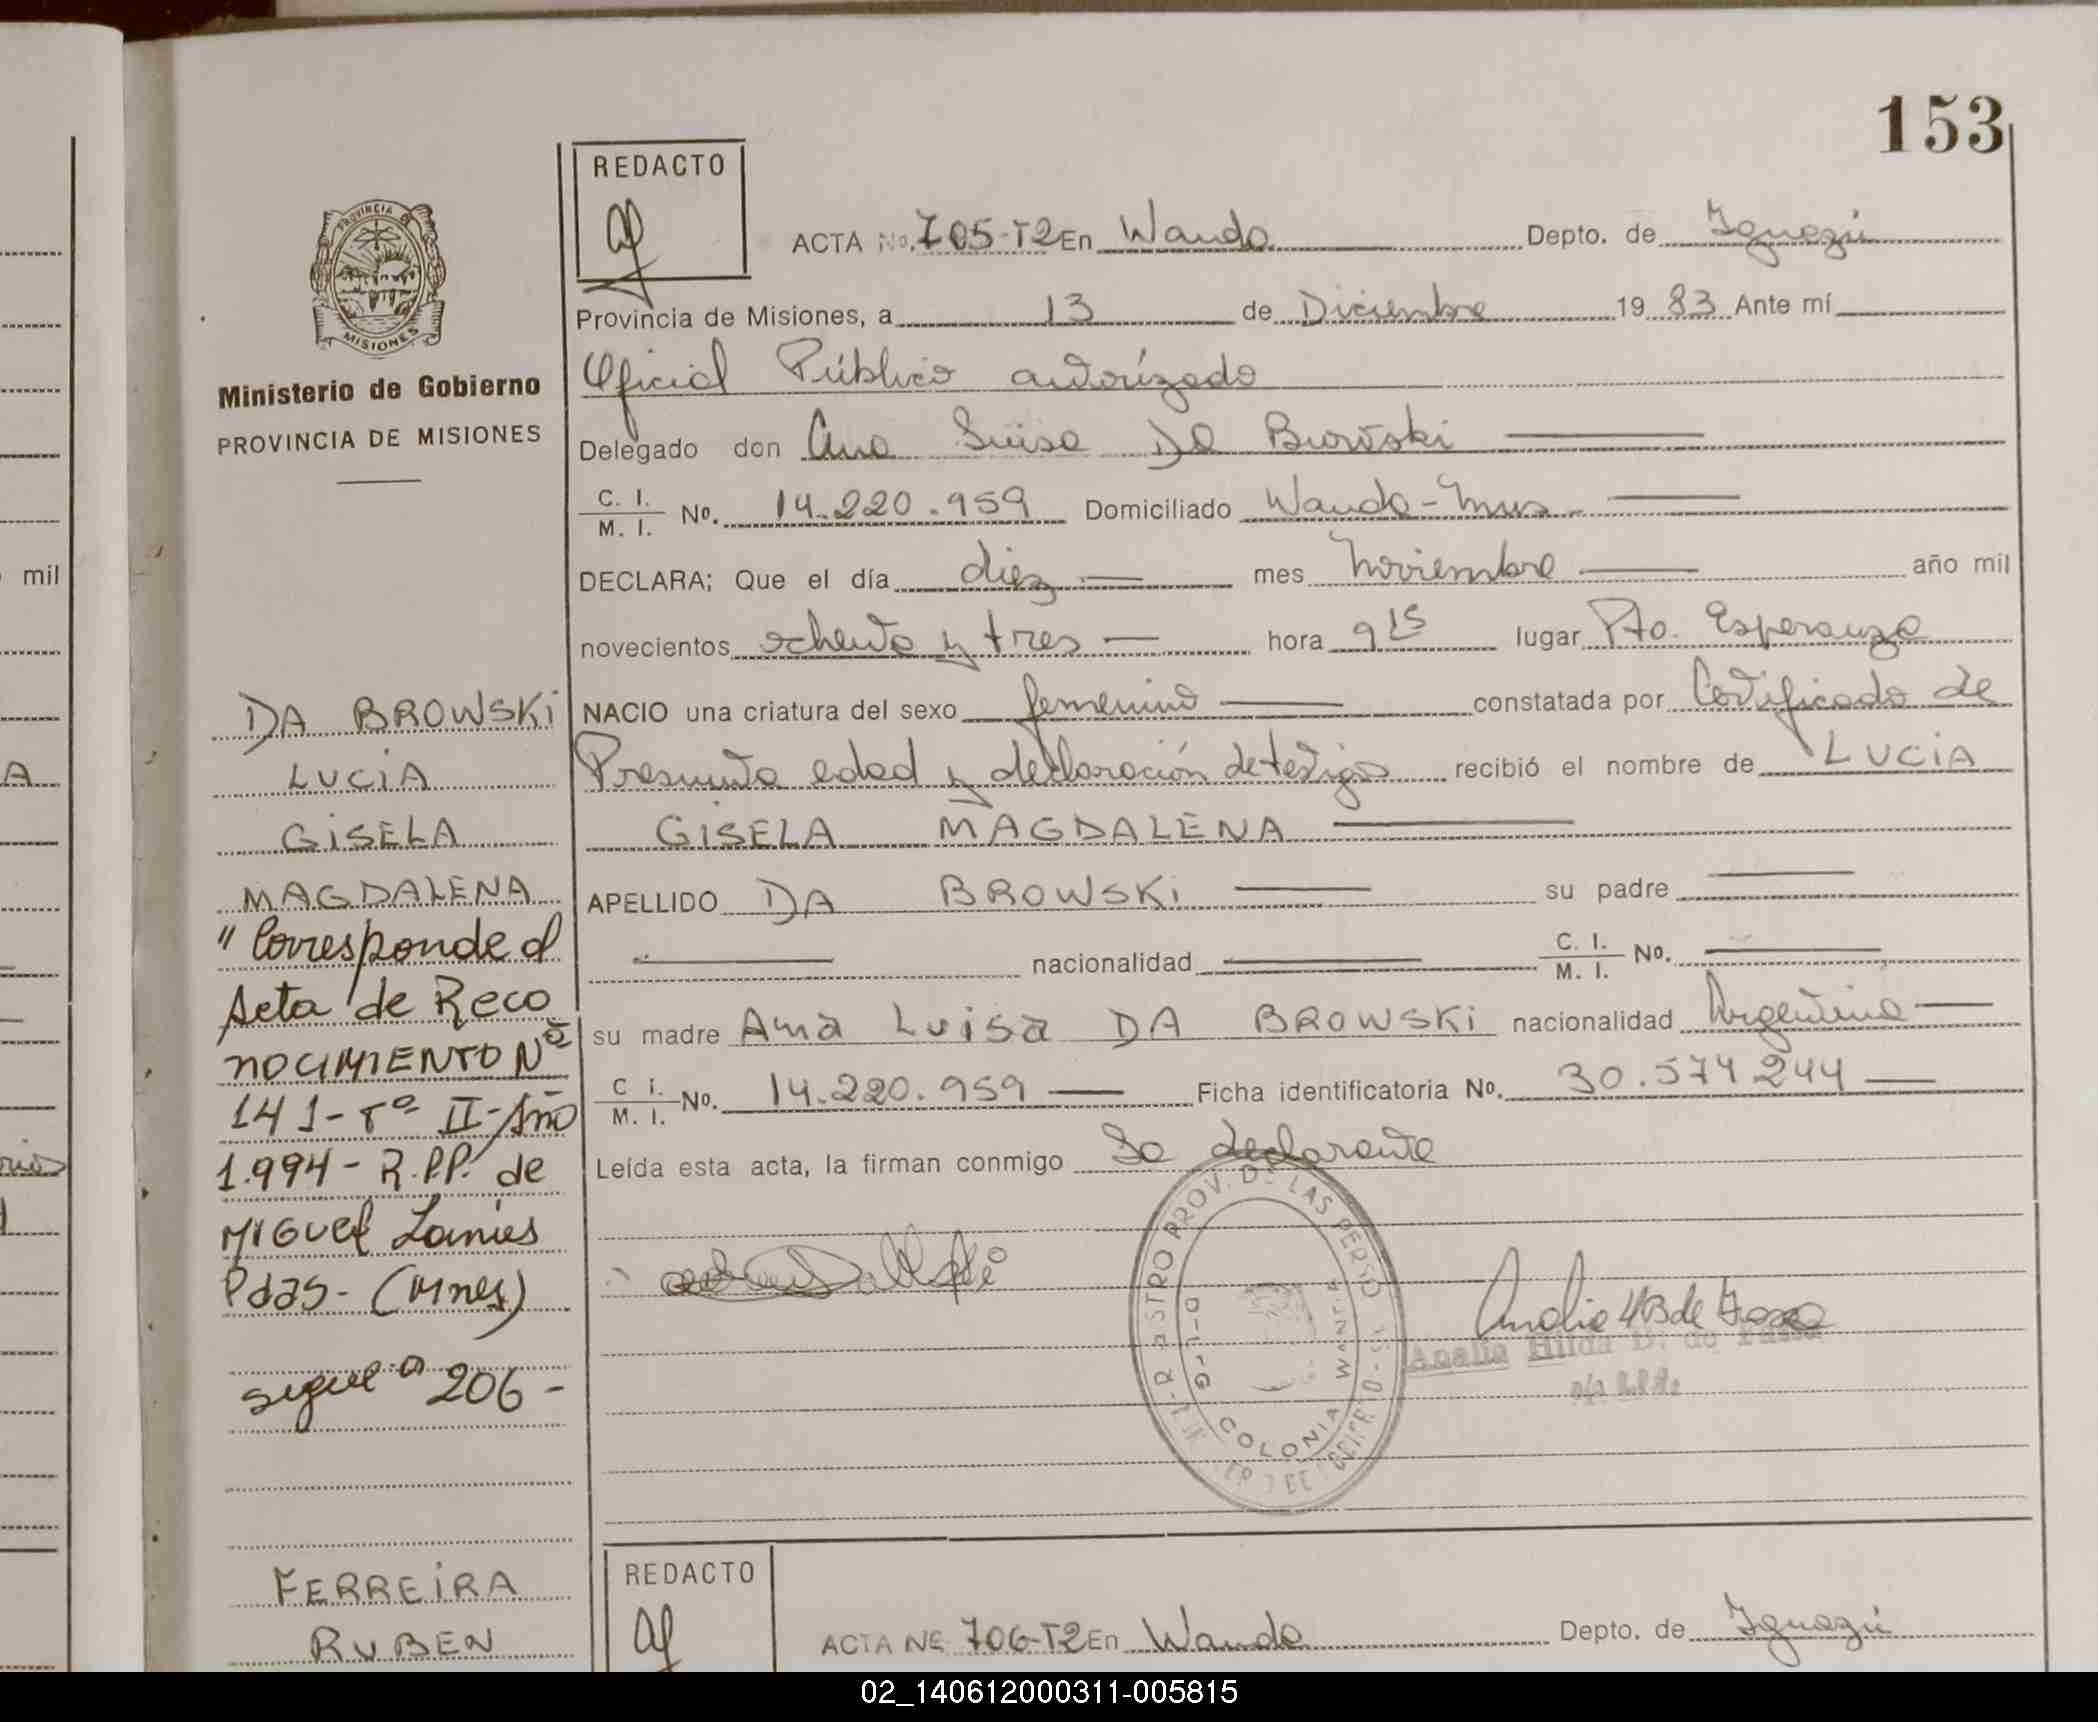 153
REDACTO
ACTA No. 705-T2 En Wanda Depto. de Iguazú
Provincia de Misiones, a 13 de Diciembre 19 83 Ante mí
Oficial Público autorizado
Delegado don Ana Luisa Da Browski
C. I. / M. I. No. 14.220.959 Domiciliado Wanda - Mnes
DECLARA; Que el día diez mes Noviembre año mil
novecientos ochenta y tres hora 9 15 lugar Pto. Esperanza
NACIO una criatura del sexo femenino constatada por Certificado de
Presunta edad y declaración de testigos recibió el nombre de LUCIA
GISELA MAGDALENA
APELLIDO DA BROWSKI su padre
nacionalidad C. I. / M. I. No.
su madre Ana Luisa DA BROWSKI nacionalidad Argentina
C I. / M. I. No. 14.220.959 Ficha identificatoria No. 30.574 244
Leída esta acta, la firman conmigo La declarante
COLONIA WANDA
Analia Hilda B. de
PROVINCIA DE MISIONES
Ministerio de Gobierno
PROVINCIA DE MISIONES
DA BROWSKI
LUCIA
GISELA
MAGDALENA
"Corresponde al
Acta de Reco
NOCIMIENTO Nº
141 - Tº II - Año
1.994 - R.P.P. de
MIGUEL Lanús
Pdas - (Mnes)
sigue a 206 -
FERREIRA
RUBEN
REDACTO
ACTA No 706-T2 En Wanda Depto. de Iguazú
mil
A
02_140612000311-005815